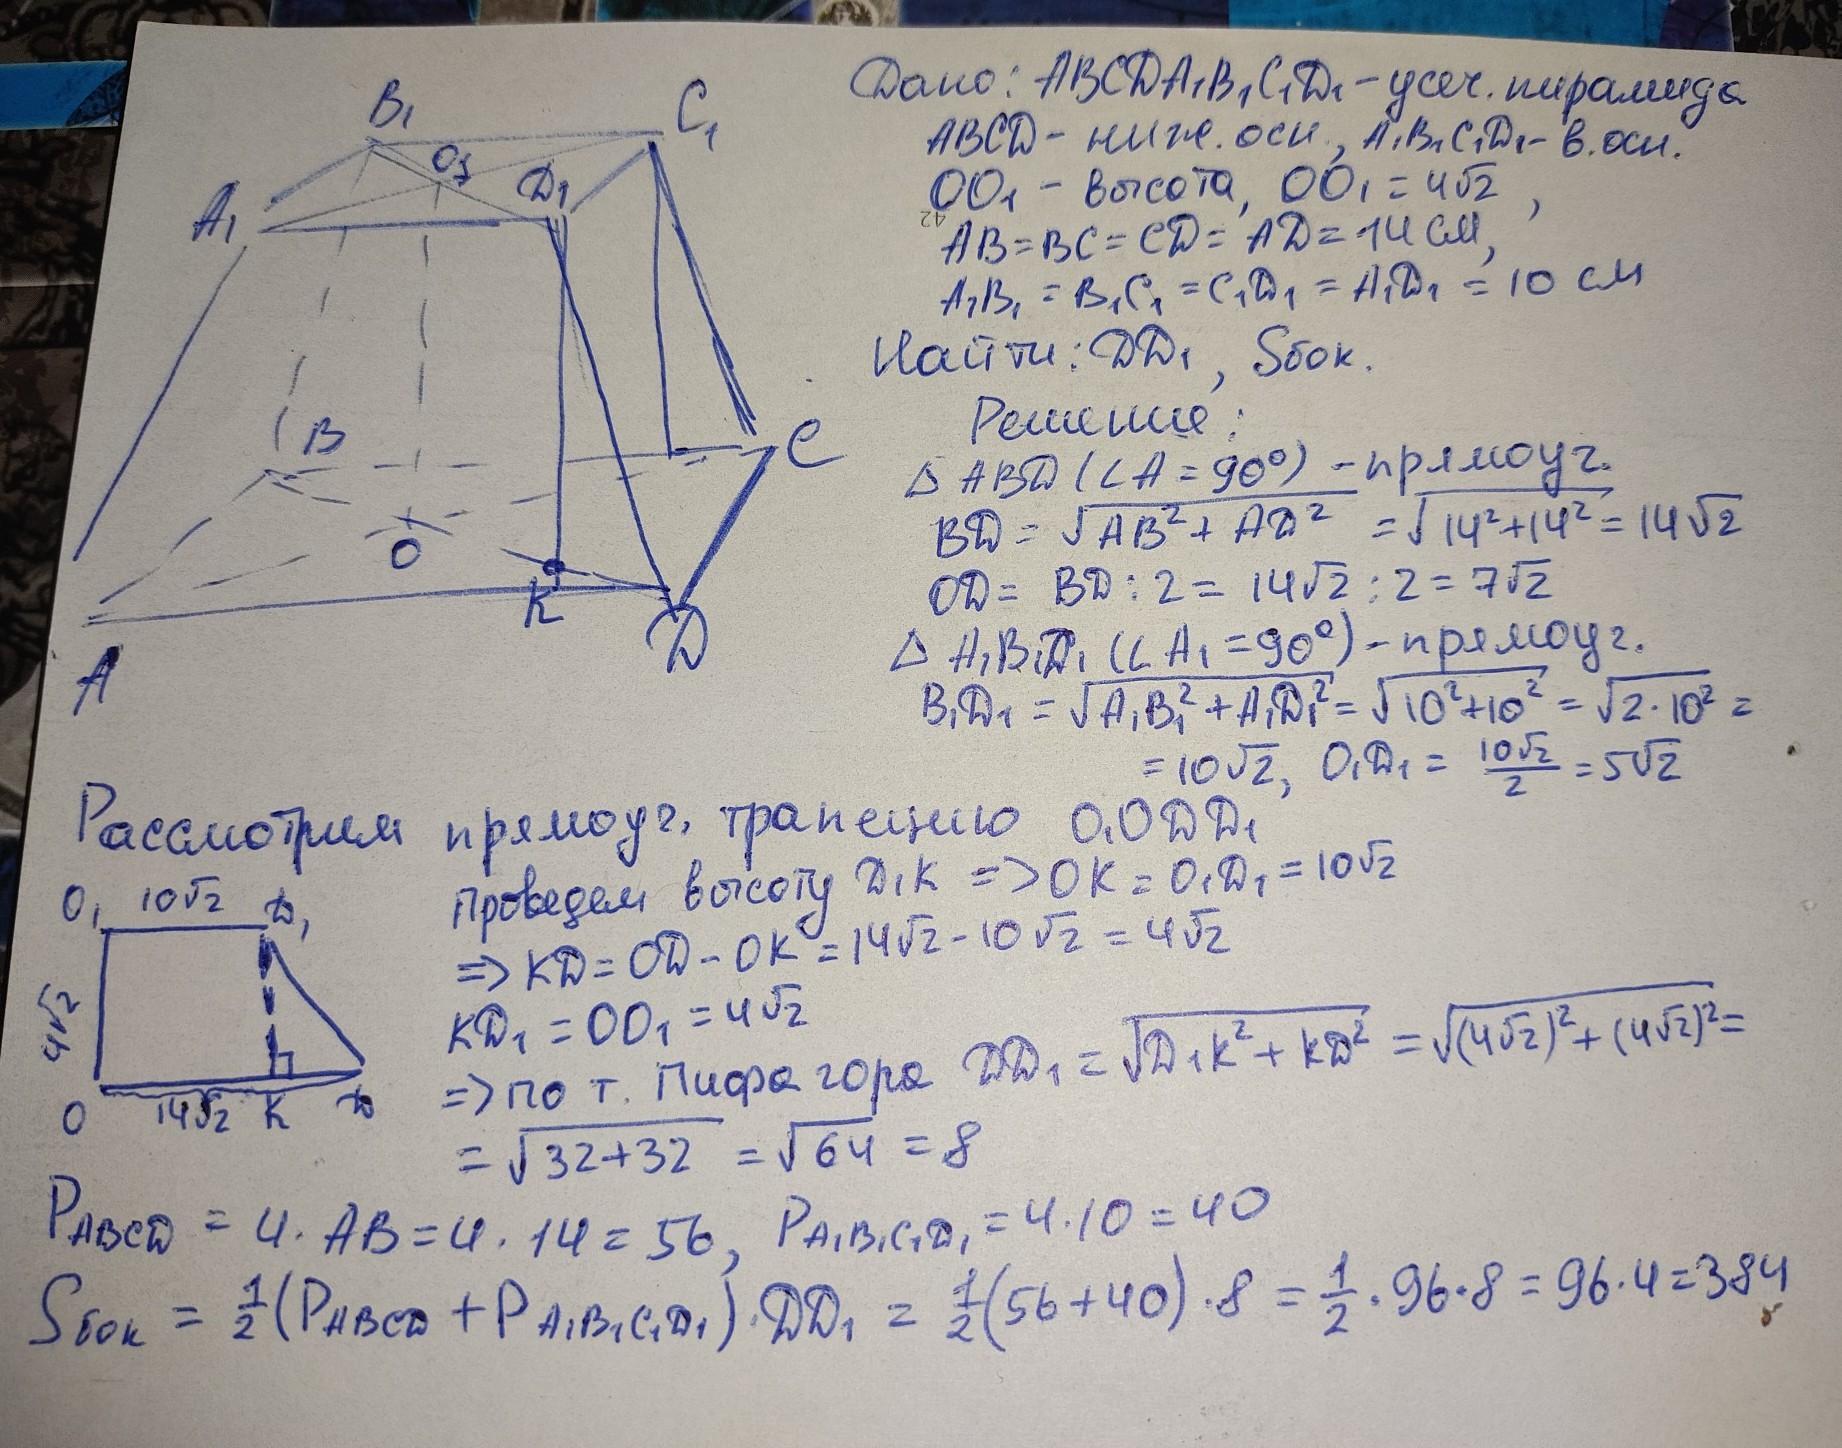 B₁
C₁
O₁
D₁
A₁
B
C
O
K
D
A
Дано: ABCDA₁B₁C₁D₁ - усеч. пирамида
ABCD - ниж. осн., A₁B₁C₁D₁ - в. осн.
OO₁ - высота, OO₁ = 4√2,
AB = BC = CD = AD = 14 см,
A₁B₁ = B₁C₁ = C₁D₁ = A₁D₁ = 10 см
Найти: DD₁, Sбок.
Решение:
△ ABD (∠A = 90°) - прямоуг.
BD = √(AB² + AD²) = √(14² + 14²) = 14√2
OD = BD : 2 = 14√2 : 2 = 7√2
△ A₁B₁D₁ (∠A₁ = 90°) - прямоуг.
B₁D₁ = √(A₁B₁² + A₁D₁²) = √(10² + 10²) = √(2 · 10²) =
= 10√2, O₁D₁ = 10√2/2 = 5√2
Рассмотрим прямоуг. трапецию O₁ODD₁
O₁ 10√2 D₁
4√2
O 14√2 K D
Проведем высоту D₁K => OK = O₁D₁ = 10√2
=> KD = OD - OK = 14√2 - 10√2 = 4√2
KD₁ = OO₁ = 4√2
=> по т. Пифагора DD₁ = √(D₁K² + KD²) = √((4√2)² + (4√2)²) =
= √(32 + 32) = √64 = 8
P ABCD = 4 · AB = 4 · 14 = 56, P A₁B₁C₁D₁ = 4 · 10 = 40
Sбок = 1/2 (P ABCD + P A₁B₁C₁D₁) · DD₁ = 1/2 (56 + 40) · 8 = 1/2 · 96 · 8 = 96 · 4 = 384